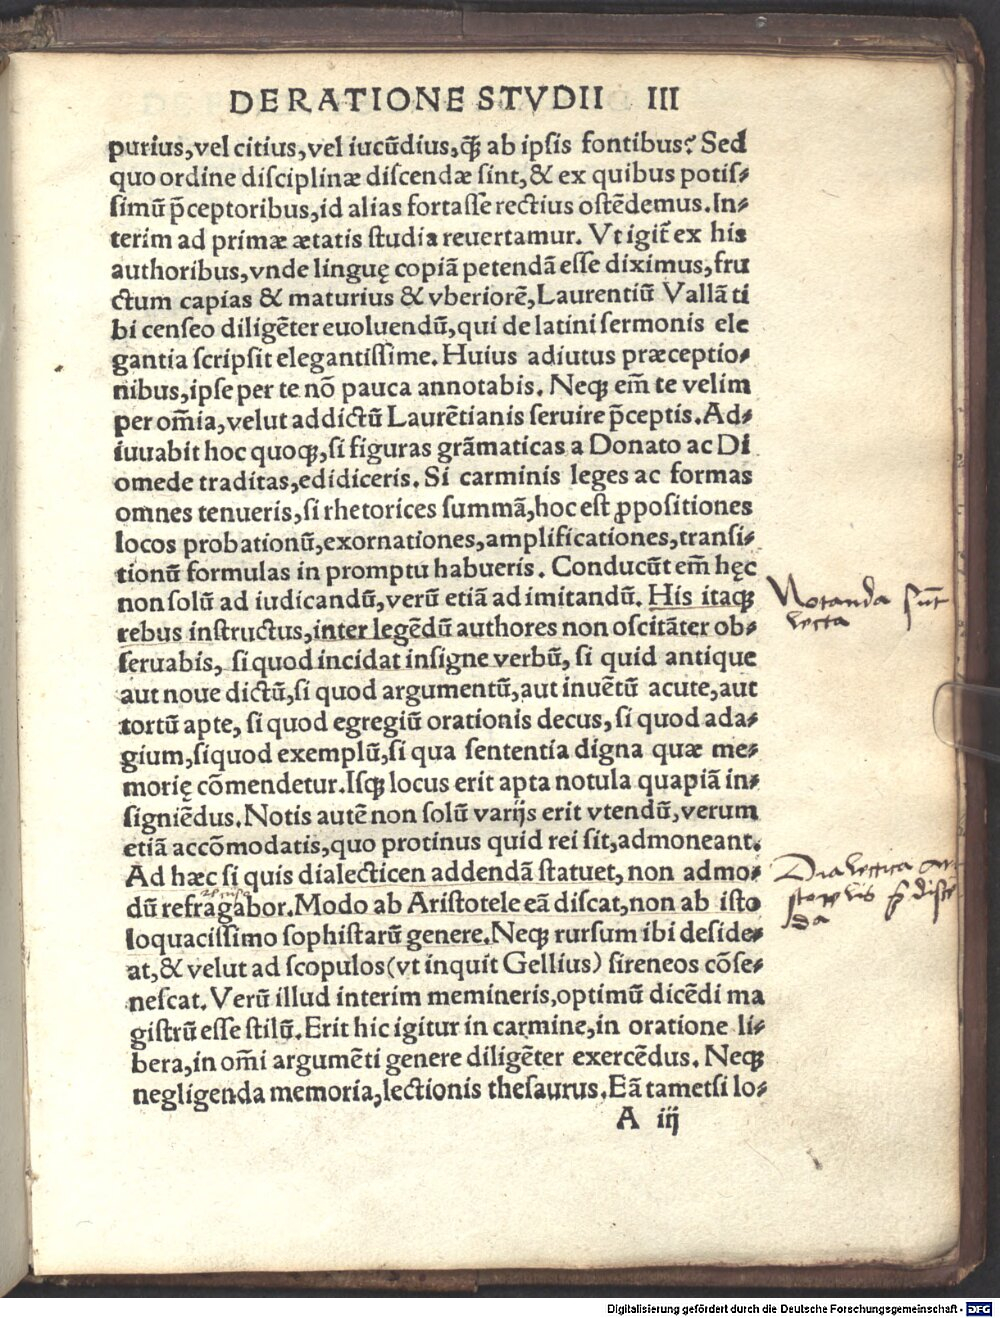 DE RATIONE STVDII III
purius,vel citius,vel iucũdius,q̃ꝫ ab ipſis fontibus? Sed
quo ordine diſciplinæ diſcendæ ſint,& ex quibus potiſ⸗
ſimũ p̃ceptoribus,id alias fortaſſe rectius oſtẽdemus.In⸗
terim ad primæ ætatis ſtudia reuertamur. Vt igit̃ ex his
authoribus,vnde linguę copiã petendã eſſe diximus,fru
ctum capias & maturius & vberiorẽ,Laurentiũ Vallã ti
bi cenſeo diligẽter euoluendũ,qui de latini ſermonis ele
gantia ſcripſit elegantiſſime. Huius adiutus præceptio⸗
nibus,ipſe per te nõ pauca annotabis. Neqꝫ em̃ te velim
per om̃ia,velut addictũ Laurẽtianis ſeruire p̃ceptis.Ad⸗
iuuabit hoc quoqꝫ,ſi figuras grãmaticas a Donato ac Di
omede traditas,edidiceris. Si carminis leges ac formas
omnes tenueris,ſi rhetorices ſummã,hoc eſt ꝓpoſitiones
locos probationũ,exornationes,amplificationes,tranſi⸗
tionũ formulas in promptu habueris. Conducũt em̃ hęc
non ſolũ ad iudicandũ,verũ etiã ad imitandũ. His itaqꝫ
rebus inſtructus,inter legẽdũ authores non oſcitãter ob⸗
ſeruabis, ſi quod incidat inſigne verbũ, ſi quid antique
aut noue dictũ,ſi quod argumentũ,aut inuẽtũ acute,aut
tortũ apte, ſi quod egregiũ orationis decus, ſi quod ada⸗
gium,ſiquod exemplũ,ſi qua ſententia digna quæ me⸗
morię cõmendetur.Iſqꝫ locus erit apta notula quapiã in⸗
ſigniẽdus. Notis autẽ non ſolũ varijs erit vtendũ, verum
etiã accõmodatis,quo protinus quid rei ſit,admoneant.
Ad hæc ſi quis dialecticen addendã ſtatuet, non admo⸗
dũ refragabor.Modo ab Ariſtotele eã diſcat,non ab iſto
loquaciſſimo ſophiſtarũ genere.Neqꝫ rurſum ibi deſide⸗
at,& velut ad ſcopulos(vt inquit Gellius) ſireneos cõſe⸗
neſcat. Verũ illud interim memineris,optimũ dicẽdi ma
giſtrũ eſſe ſtilũ. Erit hic igitur in carmine,in oratione li⸗
bera,in om̃i argumẽti genere diligẽter exercẽdus. Neqꝫ
negligenda memoria,lectionis theſaurus.Eã tametſi lo⸗
A iij
Notanda ſũt
lecta
Dialectica ar⸗
da
Digitalisierung gefördert durch die Deutsche Forschungsgemeinschaft - DFG